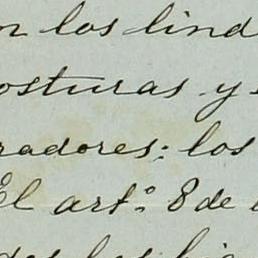 n los lind
osturas y
radores; los
El art.° 8 de